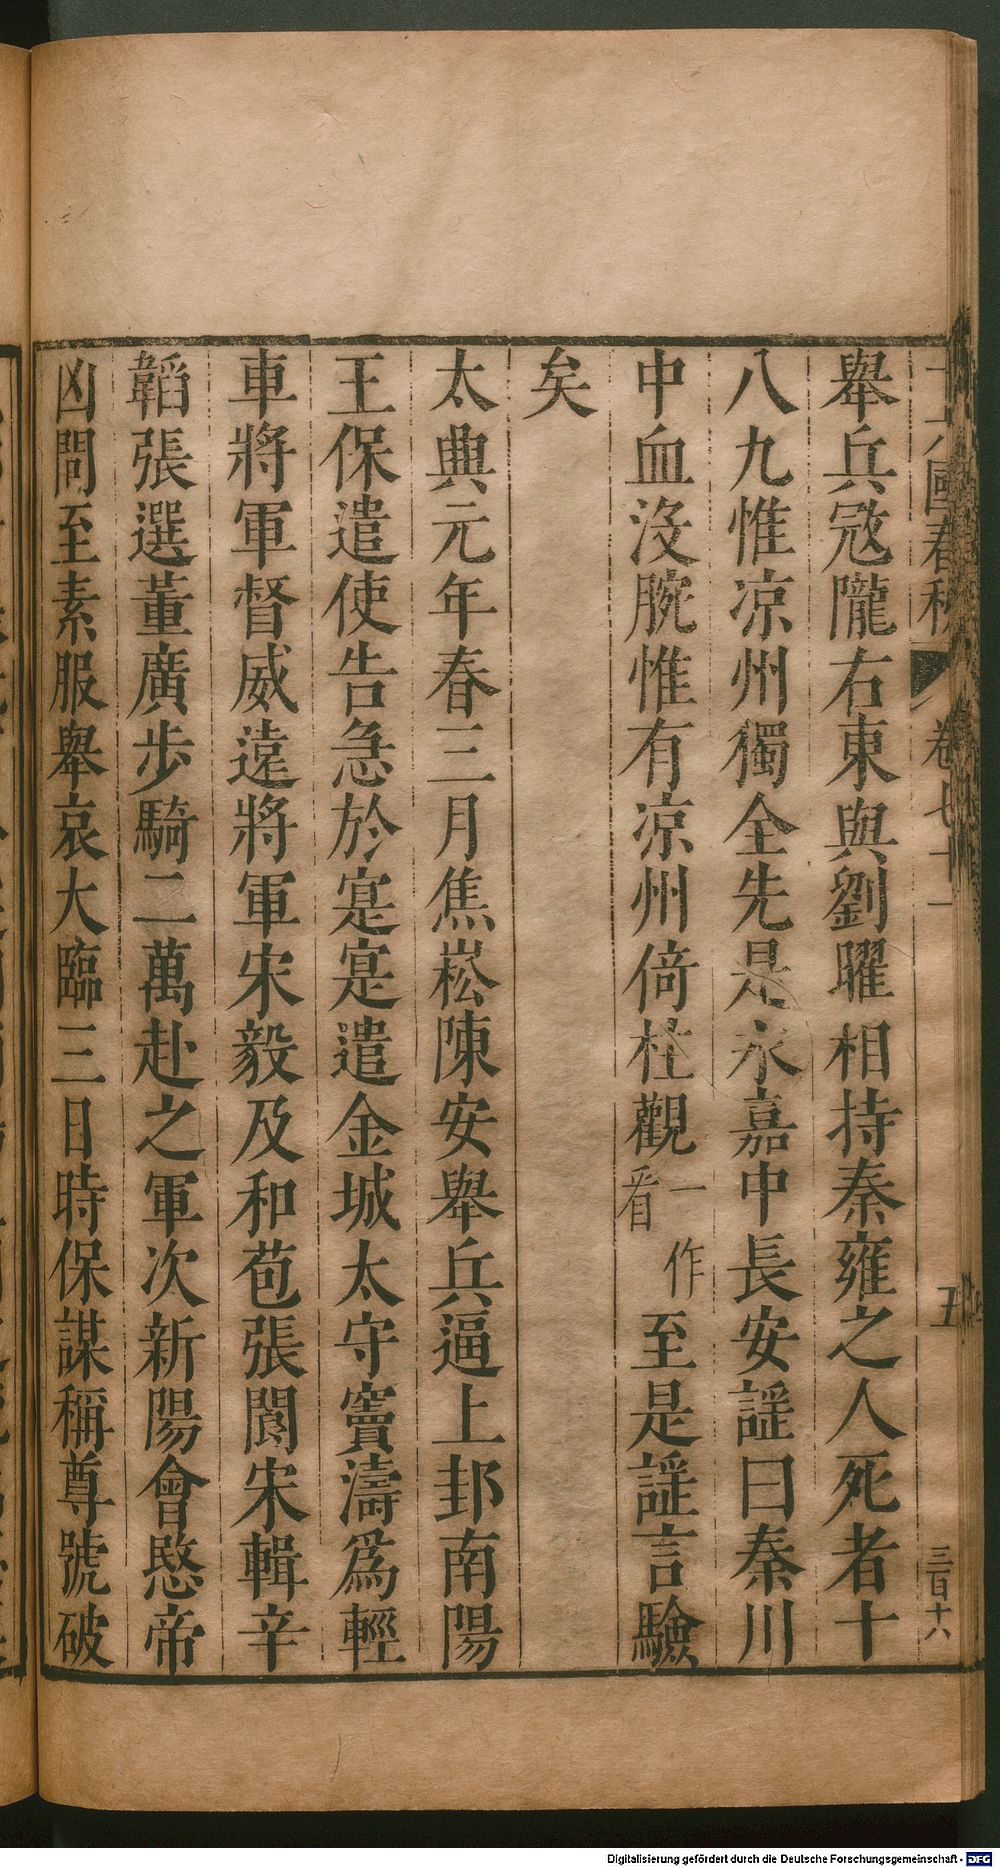 十六國春秋 卷七十一 五 三百十六
舉兵宼隴右東與劉曜相持秦雍之人死者十
八九惟凉州獨全先是永嘉中長安謡曰秦川
中血沒腕惟有凉州倚柱觀一作看至是謡言驗
矣
太興元年春三月焦崧陳安舉兵逼上邽南陽
王保遣使告急於寔寔遣金城太守竇濤爲輕
車將軍督威遠將軍宋毅及和苞張閬宋輯辛
韜張選董廣步騎二萬赴之軍次新陽會愍帝
凶問至素服舉哀大臨三日時保謀稱尊號破
Digitalisierung gefördert durch die Deutsche Forschungsgemeinschaft - DFG